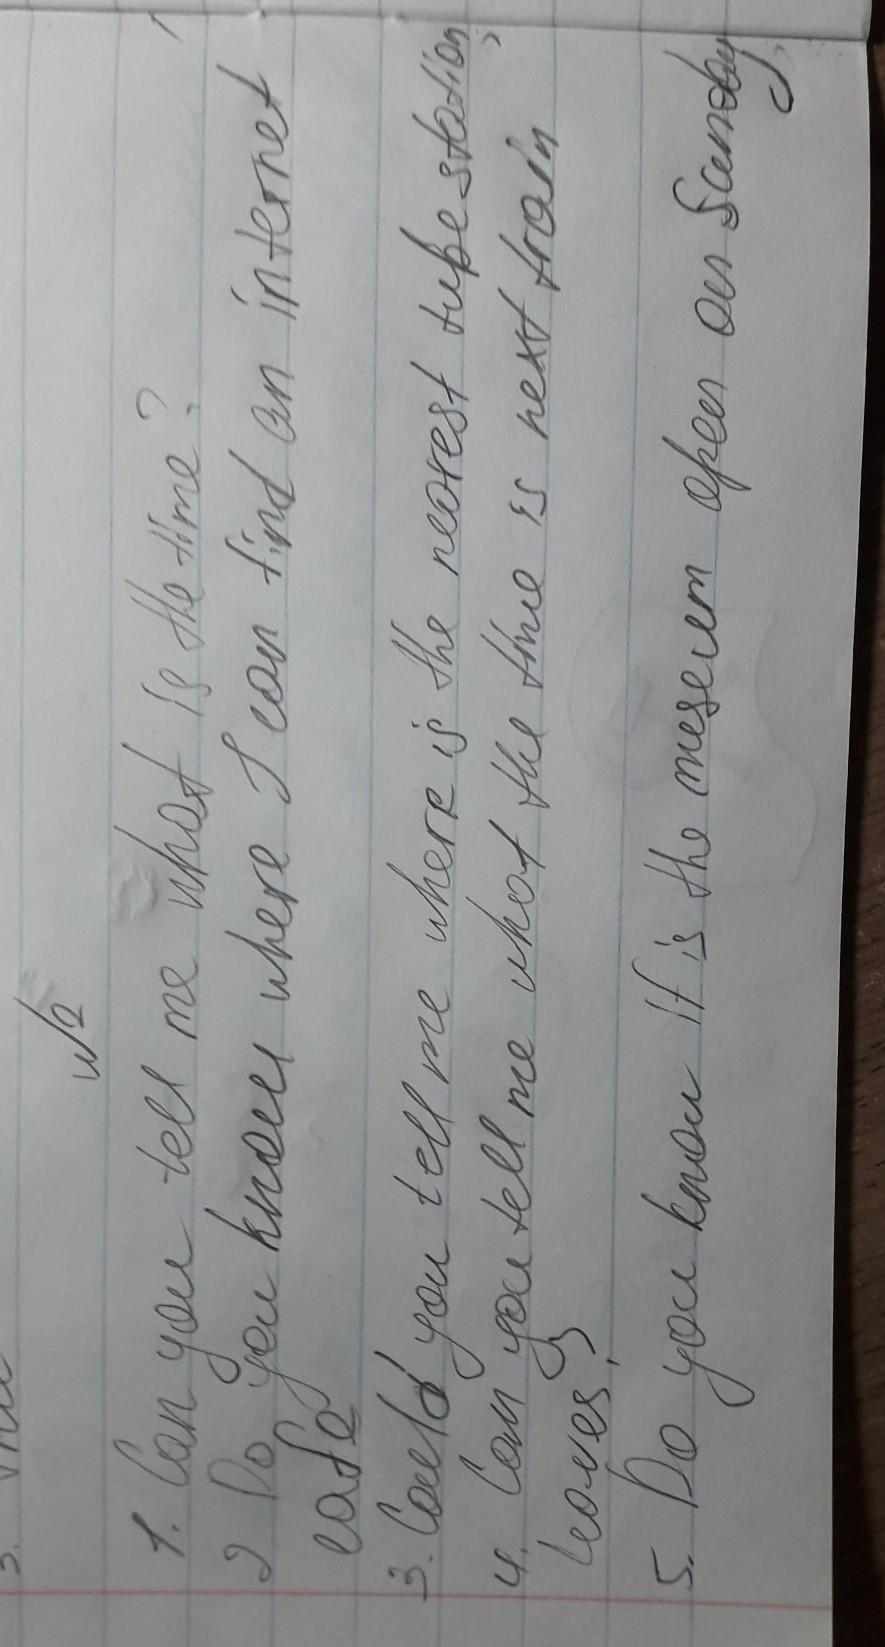 w2
1. Can you tell me what is the time?
2 Do you know where I can find an internet
cafe
3. Could you tell me where is the nearest tube station?
4. Can you tell me what the time is next train
leaves?
5. Do you know if is the meseum open on Sunday?